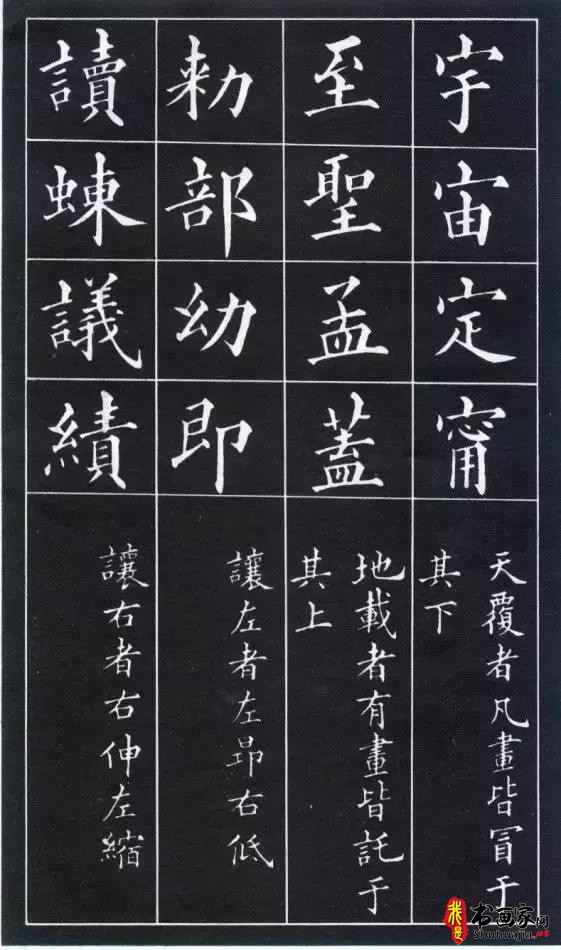 宇宙定甯
天覆者凡畫皆冒于
其下
至聖孟蓋
地載者有畫皆託于
其上
勑部幼即
讓左者左昻右低
讀蝀議績
讓右者右伸左縮
我是
书画家网
Shuhuajia.net